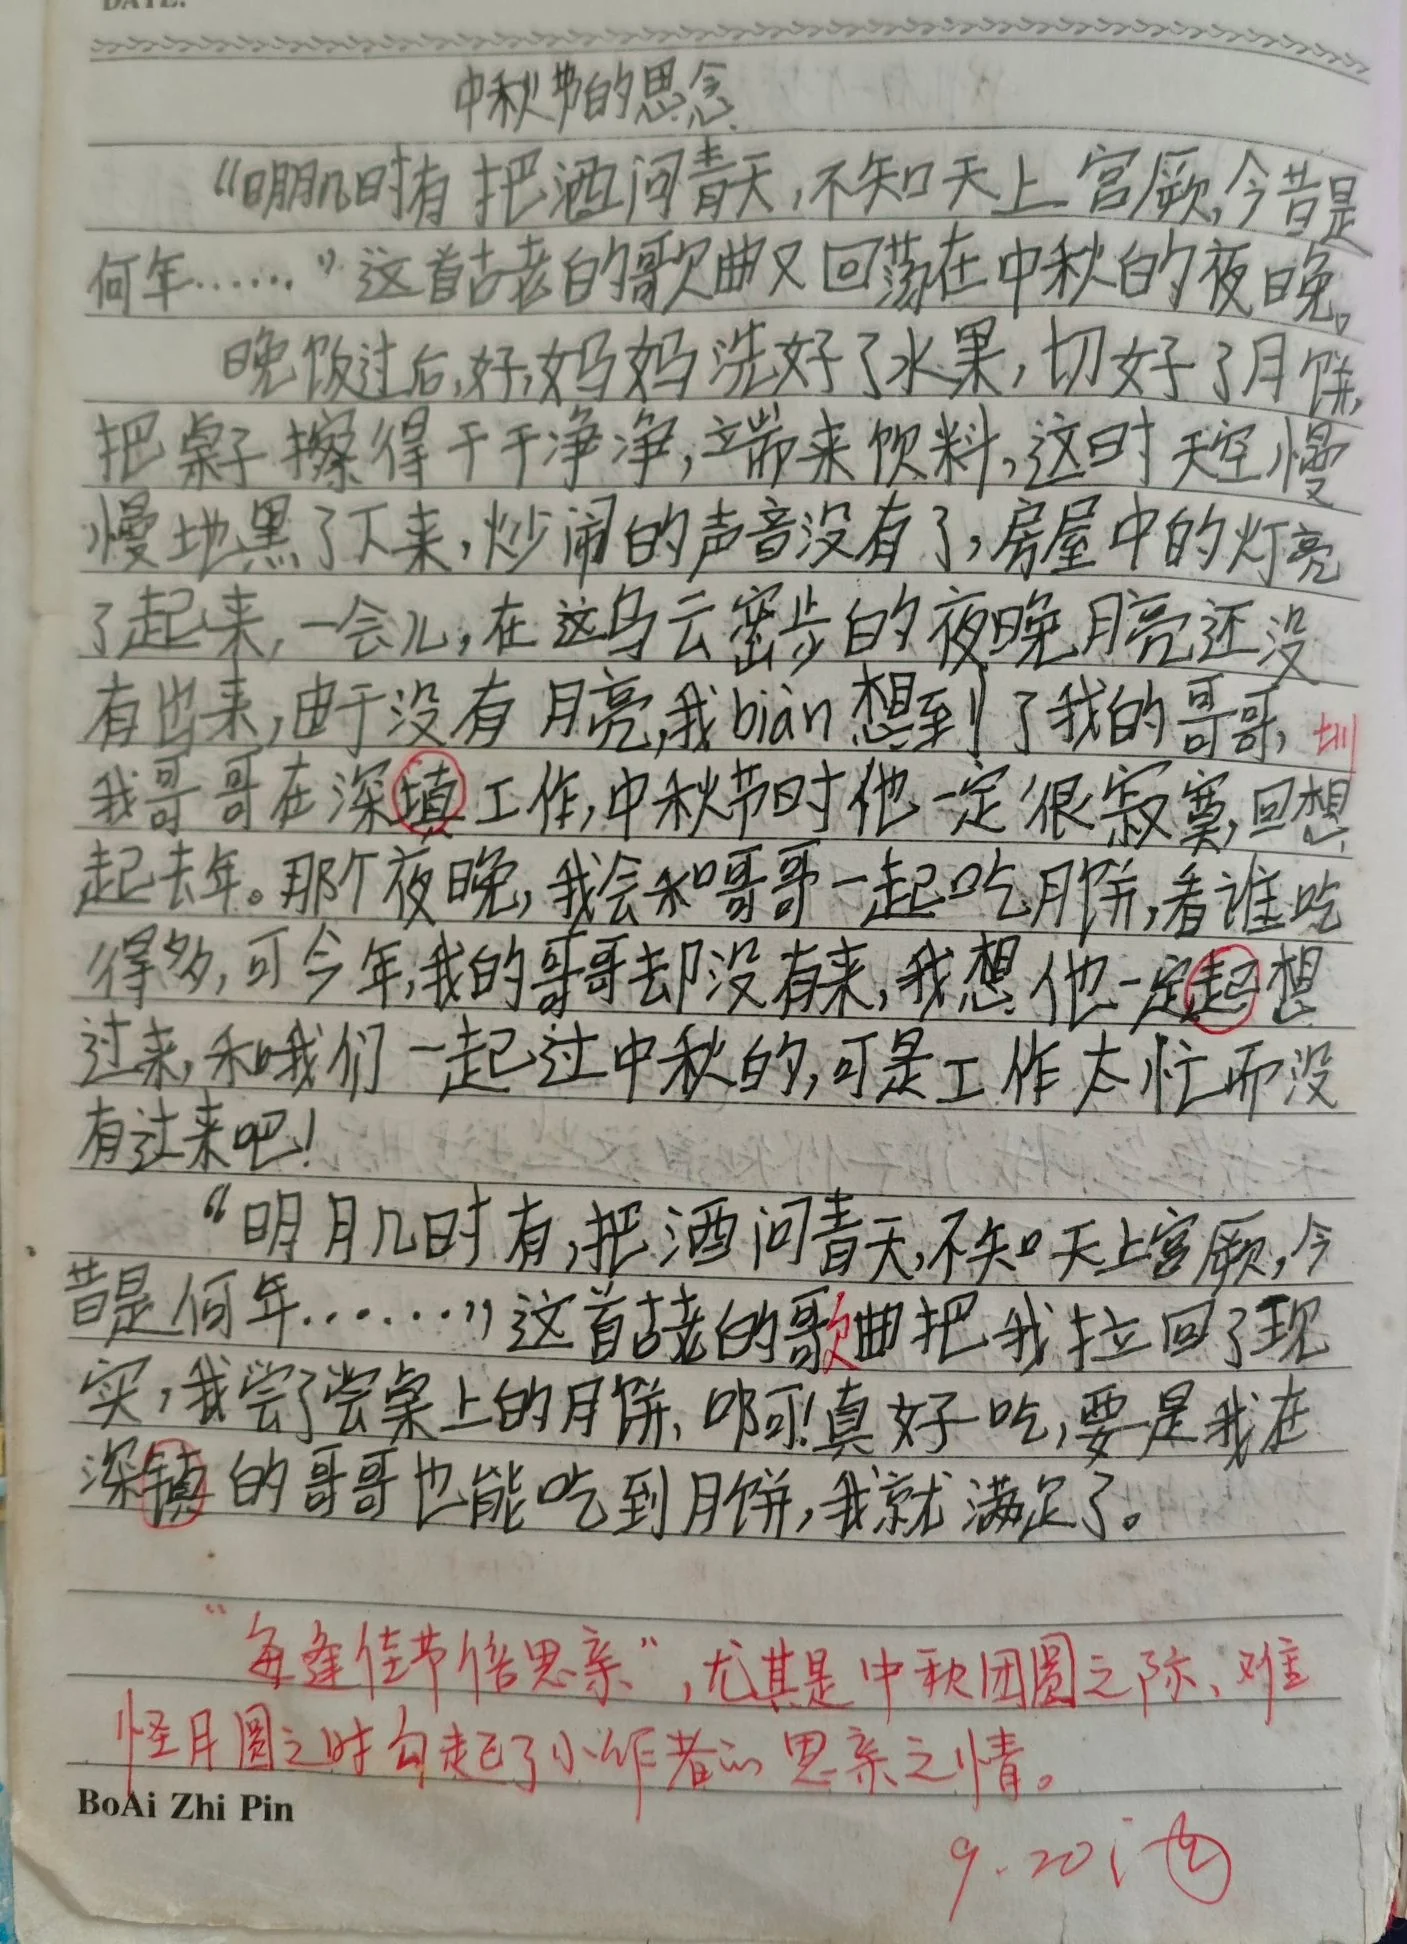 DATE:
中秋节的思念
“明月几时有 把酒问青天,不知天上宫厥,今昔是
何年……”这首古老的歌曲又回荡在中秋的夜晚。
晚饭过后,好妈妈洗好了水果,切好了月饼,
把桌子擦得干干净净,端来饮料,这时天空慢
慢地黑了下来,炒闹的声音没有了,房屋中的灯亮
了起来,一会儿,在这乌云密步的夜晚月亮还没
有出来,由于没有月亮,我biàn想到了我的哥哥,圳
我哥哥在深填工作,中秋节时他一定很寂寞,回想
起去年。那个夜晚,我会和哥哥一起吃月饼,看谁吃
得多,可今年,我的哥哥却没有来,我想他一定起想
过来,和我们一起过中秋的,可是工作太忙而没
有过来吧!
“明月几时有,把酒问青天,不知天上宫厥,今
昔是何年……”这首古老的歌曲把我拉回了现
实,我尝了尝桌上的月饼,啊!真好吃,要是我在
深镇的哥哥也能吃到月饼,我就满足了。
“每逢佳节倍思亲”,尤其是中秋团圆之际、难
怪月圆之时勾起了小作者的思亲之情。
BoAi Zhi Pin
9.20